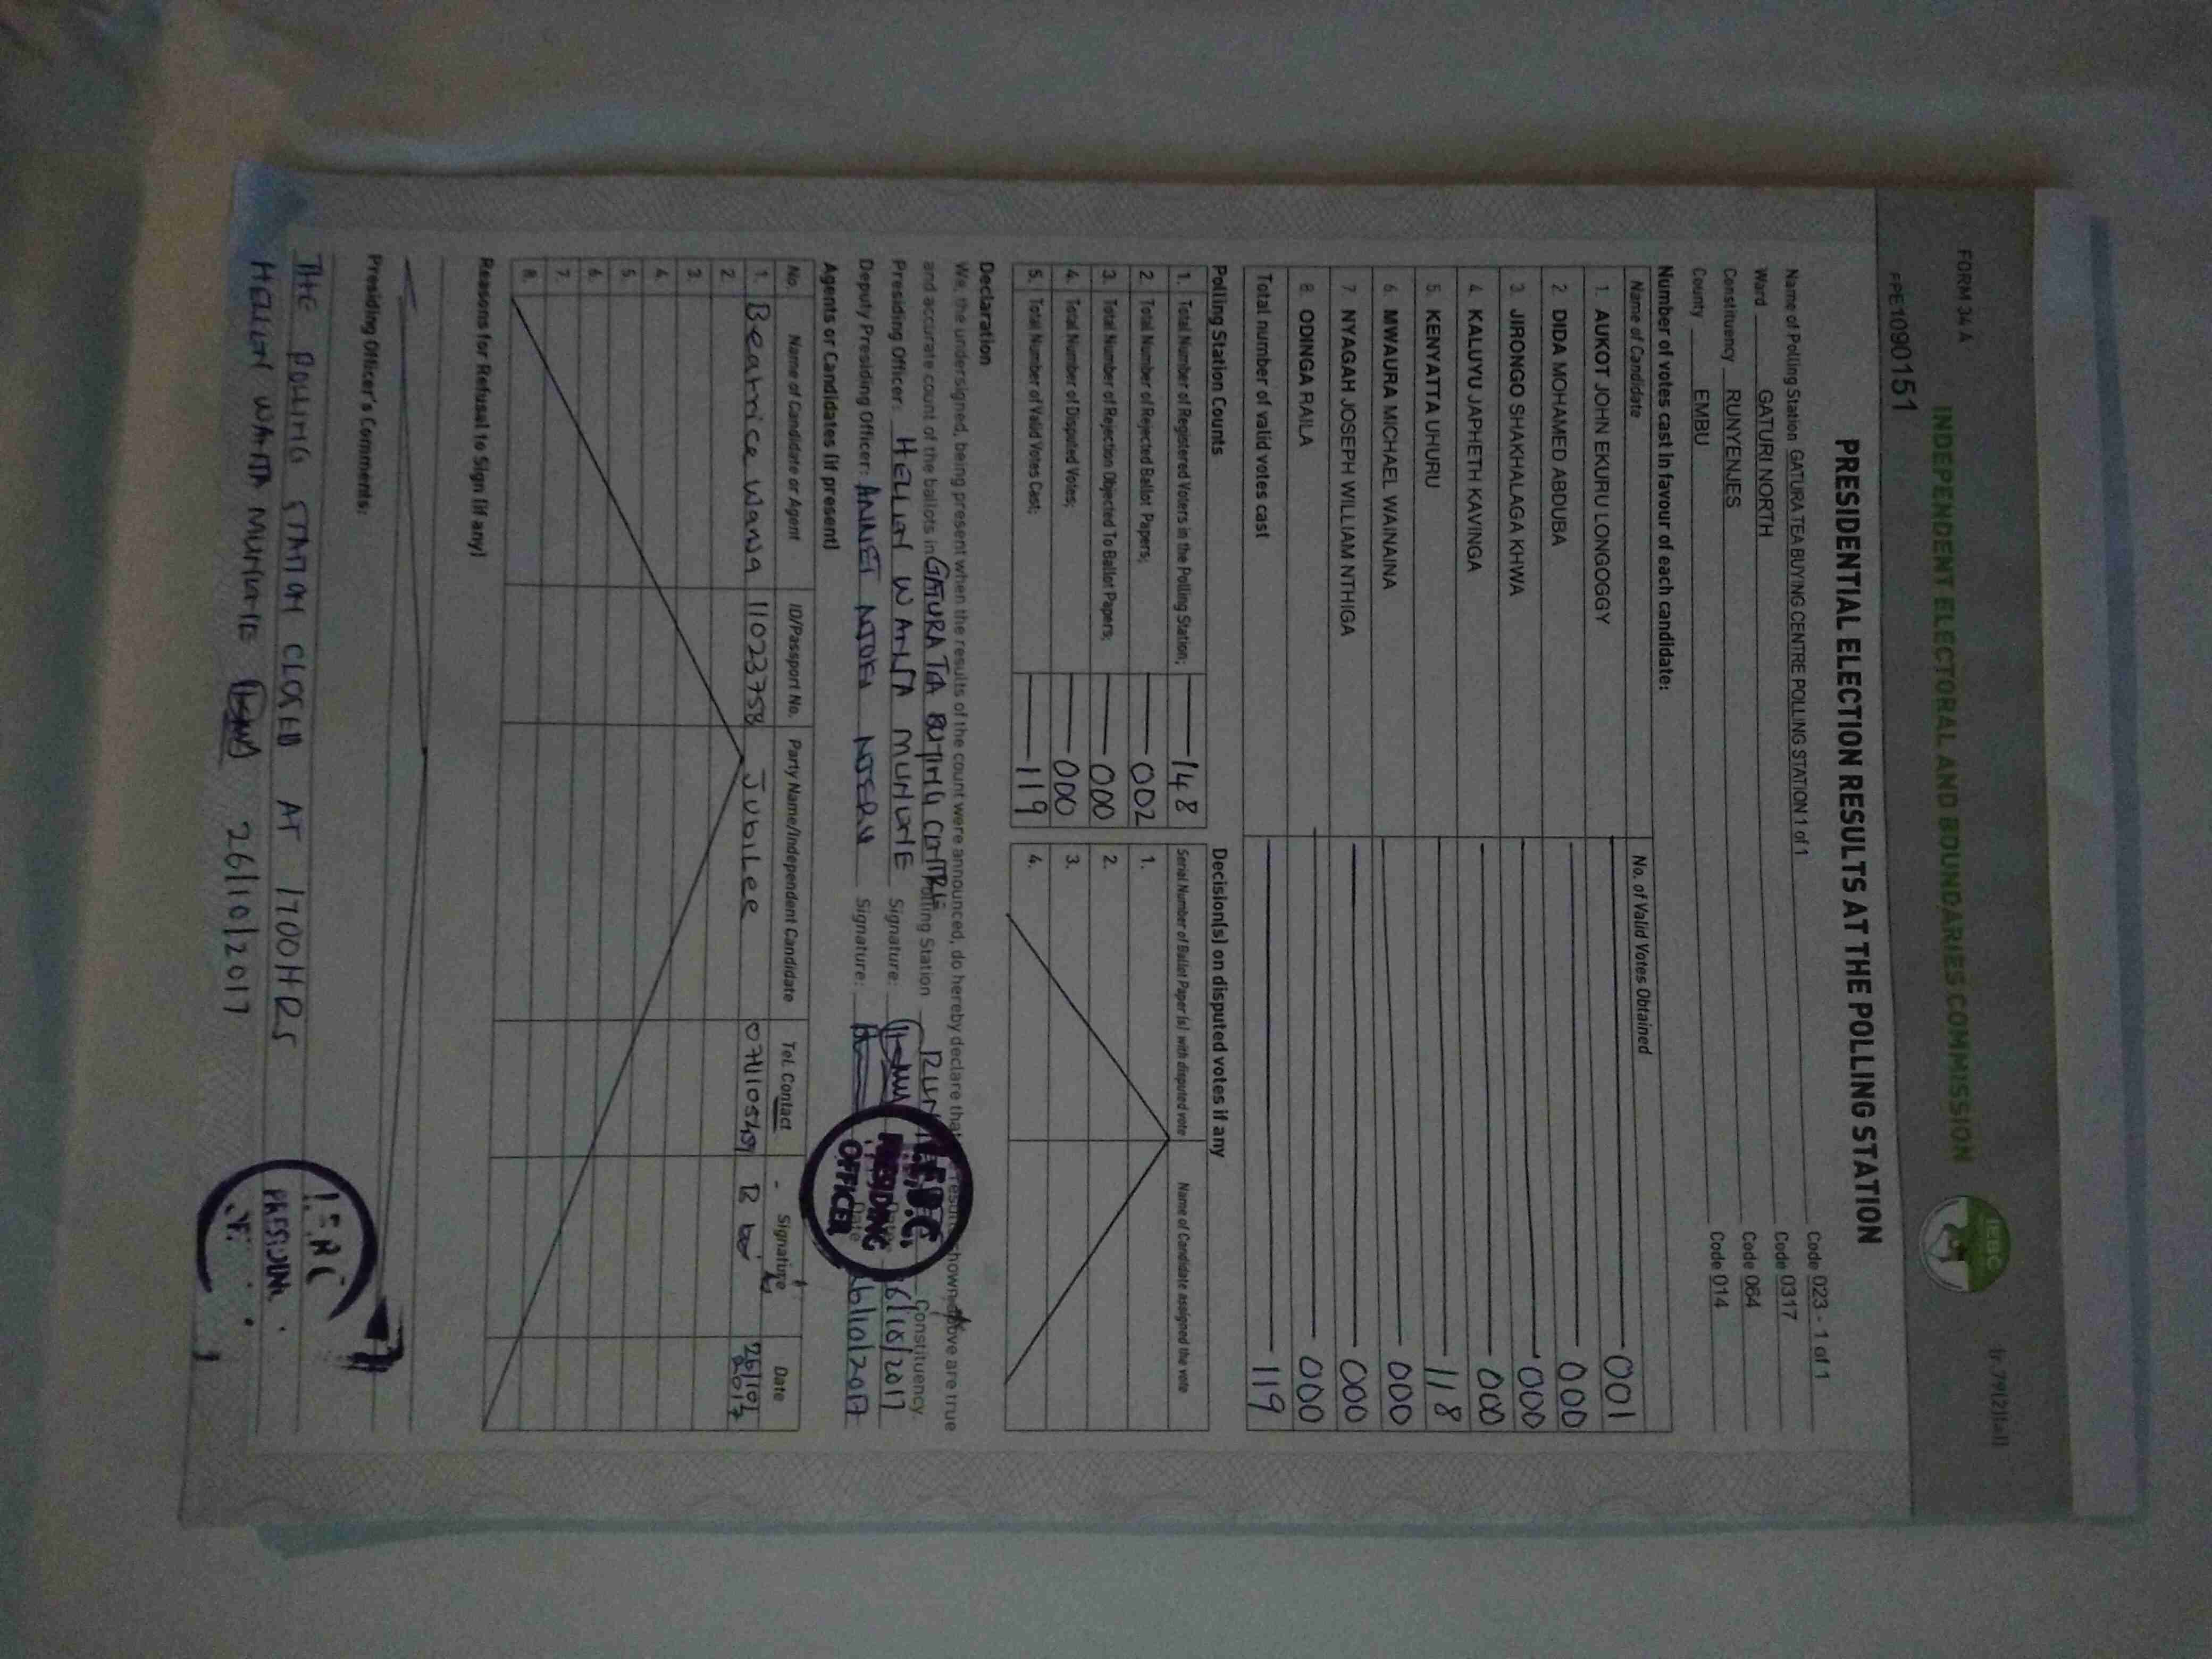 FORM 34 A
INDEPENDENT ELECTORAL AND BOUNDARIES COMMISSION
IEBC
PPE1090151
PRESIDENTIAL ELECTION RESULTS AT THE POLLING STATION
Name of Polling Station GATURA TEA BUYING CENTRE POLLING STATION 1 of 1 Code 023 - 1 of 1
Ward GATURI NORTH Code 0317
Constituency RUNYENJES Code 064
County EMBU Code 014
Number of votes cast in favour of each candidate:
Name of Candidate No. of Valid Votes Obtained
1. AUKOT JOHN EKURU LONGOGGY 001
2. DIDA MOHAMED ABDUBA 000
3. JIRONGO SHAKHALAGA KHWA 000
4. KALUYU JAPHETH KAVINGA 000
5. KENYATTA UHURU 118
6. MWAURA MICHAEL WAINAINA 000
7. NYAGAH JOSEPH WILLIAM NTHIGA 000
8. ODINGA RAILA 000
Total number of valid votes cast 119
Polling Station Counts
1. Total Number of Registered Voters in the Polling Station; 148
2. Total Number of Rejected Ballot Papers; 002
3. Total Number of Rejection Objected To Ballot Papers; 000
4. Total Number of Disputed Votes; 000
5. Total Number of Valid Votes Cast; 119
Decision(s) on disputed votes if any
Serial Number of Ballot Paper (s) with disputed vote Name of Candidate assigned the vote
1.
2.
3.
4.
Declaration
We, the undersigned, being present when the results of the count were announced, do hereby declare that results shown above are true
and accurate count of the ballots in GATURA TEA BUYING CENTRE Polling Station Constituency
Presiding Officer: HELLEN WANJA MUNUHE Signature: Date
Deputy Presiding Officer: ANNET Signature: Date 26/10/2017
I.E.B.C.
PRESIDING
OFFICER
Agents or Candidates (if present)
No. Name of Candidate or Agent ID/Passport No. Party Name/Independent Candidate Tel. Contact Signature Date
1. Beatrice Wanja 11023758 Jubilee 26/10/2017
2.
3.
4.
5.
6.
7.
8.
Reasons for Refusal to Sign (if any)
Presiding Officer's Comments:
THE POLLING STATION CLOSED AT 1700HRS
HELLEN WANJA MUNUHE 26/10/2017
PRESIDING